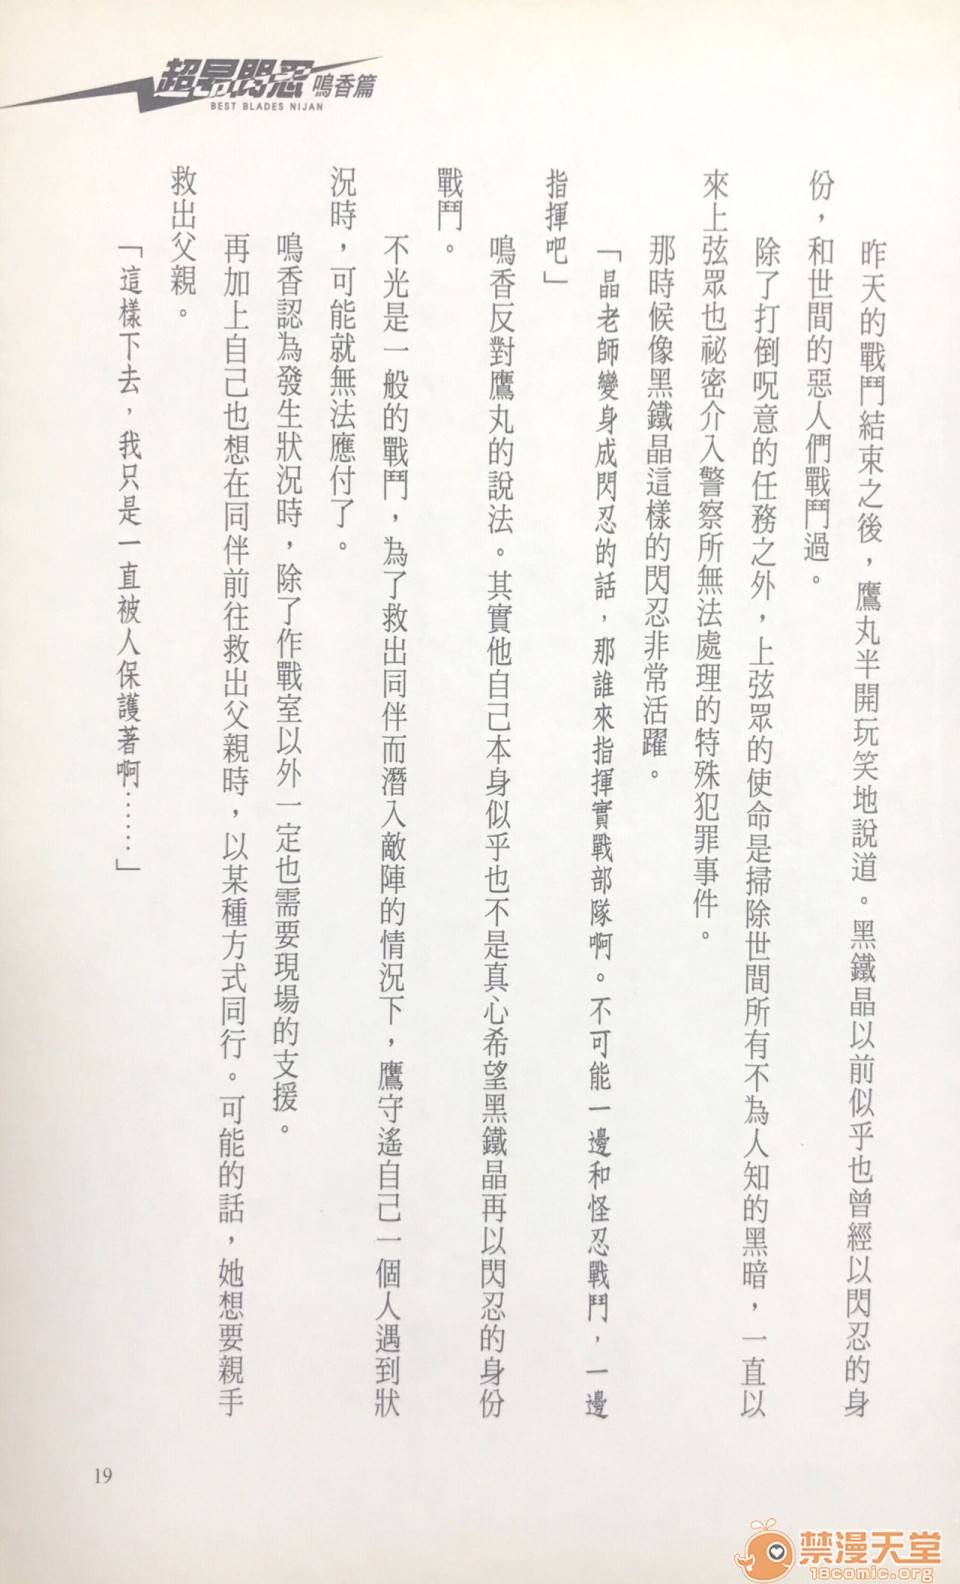 超昂閃忍 鳴香篇
BEST BLADES NIJAN
昨天的戰鬥結束之後，鷹丸半開玩笑地說道。黑鐵晶以前似乎也曾經以閃忍的身
份，和世間的惡人們戰鬥過。
除了打倒呪意的任務之外，上弦眾的使命是掃除世間所有不為人知的黑暗，一直以
來上弦眾也祕密介入警察所無法處理的特殊犯罪事件。
那時候像黑鐵晶這樣的閃忍非常活躍。
「晶老師變身成閃忍的話，那誰來指揮實戰部隊啊。不可能一邊和怪忍戰鬥，一邊
指揮吧」
鳴香反對鷹丸的說法。其實他自己本身似乎也不是真心希望黑鐵晶再以閃忍的身份
戰鬥。
不光是一般的戰鬥，為了救出同伴而潛入敵陣的情況下，鷹守遙自己一個人遇到狀
況時，可能就無法應付了。
鳴香認為發生狀況時，除了作戰室以外一定也需要現場的支援。
再加上自己也想在同伴前往救出父親時，以某種方式同行。可能的話，她想要親手
救出父親。
「這樣下去，我只是一直被人保護著啊……」
19
禁漫天堂
18comic.org